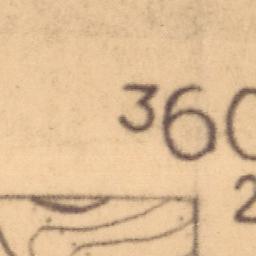 ³60
2